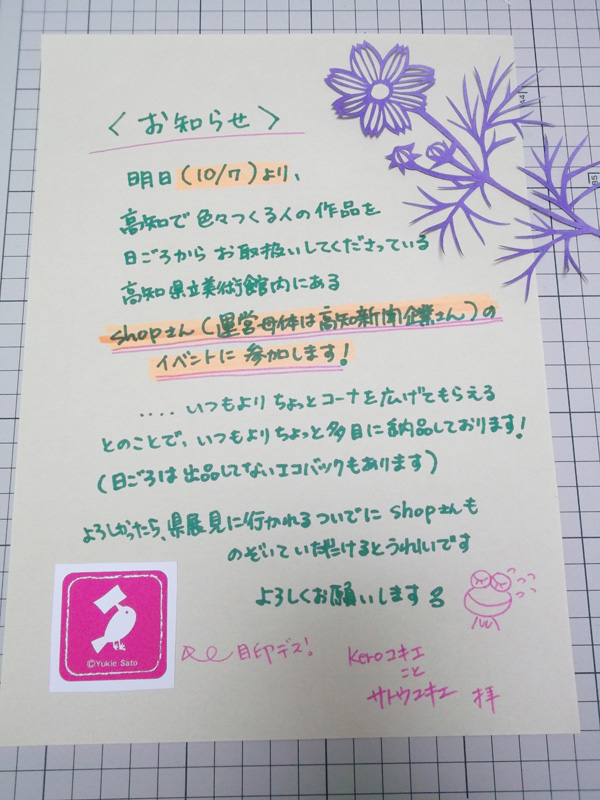 〈お知らせ〉
明日(10/7)より、
高知で色々つくる人の作品を
日ごろからお取扱いしてくださっている
高知県立美術館内にある
shopさん(運営母体は高知新聞企業さん)の
イベントに参加します!
....いつもよりちょっとコーナを広げてもらえる
とのことで、いつもよりちょっと多目に納品しております!
(日ごろは出品してないエコバックもあります)
よろしかったら、県展見に行かれるついでにshopさんも
のぞいていただけるとうれしいです
よろしくお願いします
©Yukie Sato
目印デス!
Keroユキエ
こと
サトウユキエ 拝